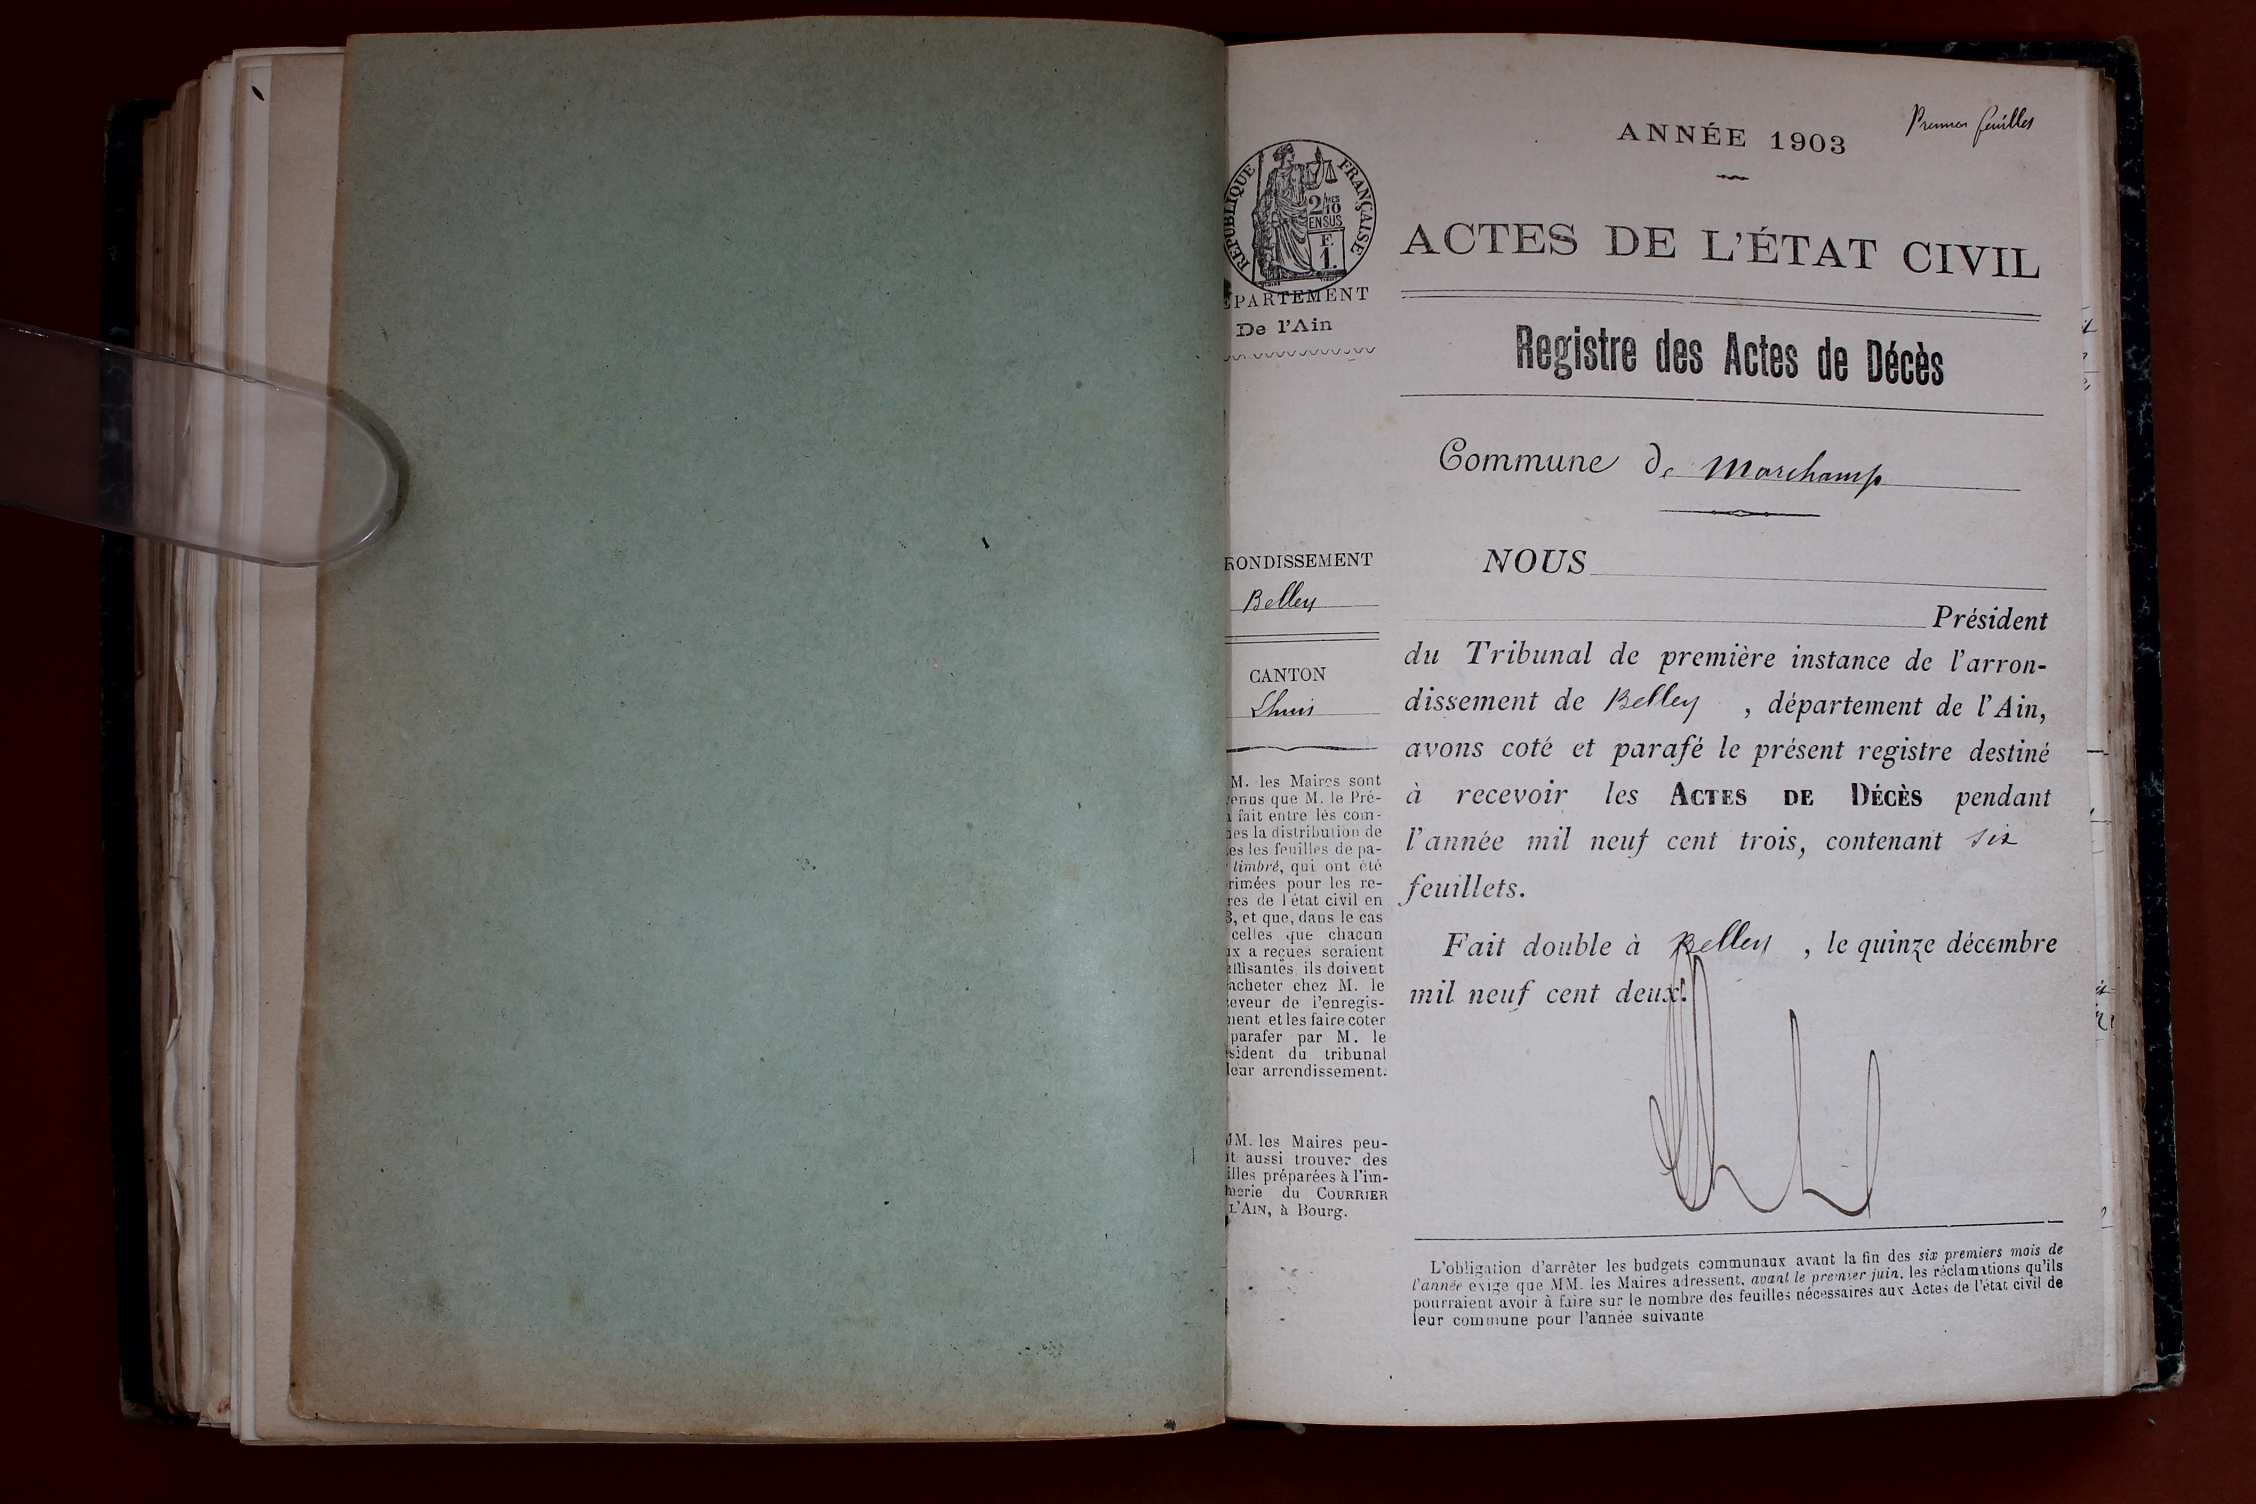 Premier feuillet
ANNÉE 1903
RÉPUBLIQUE FRANÇAISE
2/10 MES
EN SUS
F.
1.
ACTES DE L'ÉTAT CIVIL
ÉPARTEMENT
De l'Ain
Registre des Actes de Décès
Commune de Marchamp
RONDISSEMENT
Belley
CANTON
Lhuis
M. les Maires sont
enus que M. le Pré-
a fait entre les com-
nes la distribution de
es les feuilles de pa-
timbré, qui ont été
rimées pour les re-
res de l'état civil en
3, et que, dans le cas
celles que chacun
ux a reçues seraient
ffisantes, ils doivent
acheter chez M. le
eveur de l'enregis-
ment et les faire coter
parafer par M. le
sident du tribunal
leur arrondissement.
MM. les Maires peu-
nt aussi trouver des
illes préparées à l'im-
merie du COURRIER
L'AIN, à Bourg.
NOUS
Président
du Tribunal de première instance de l'arron-
dissement de Belley, département de l'Ain,
avons coté et parafé le présent registre destiné
à recevoir les ACTES DE DÉCÈS pendant
l'année mil neuf cent trois, contenant six
feuillets.
Fait double à Belley, le quinze décembre
mil neuf cent deux.
L'obligation d'arrêter les budgets communaux avant la fin des six premiers mois de
l'année exige que MM. les Maires adressent, avant le premier juin, les réclamations qu'ils
pourraient avoir à faire sur le nombre des feuilles nécessaires aux Actes de l'état civil de
leur commune pour l'année suivante